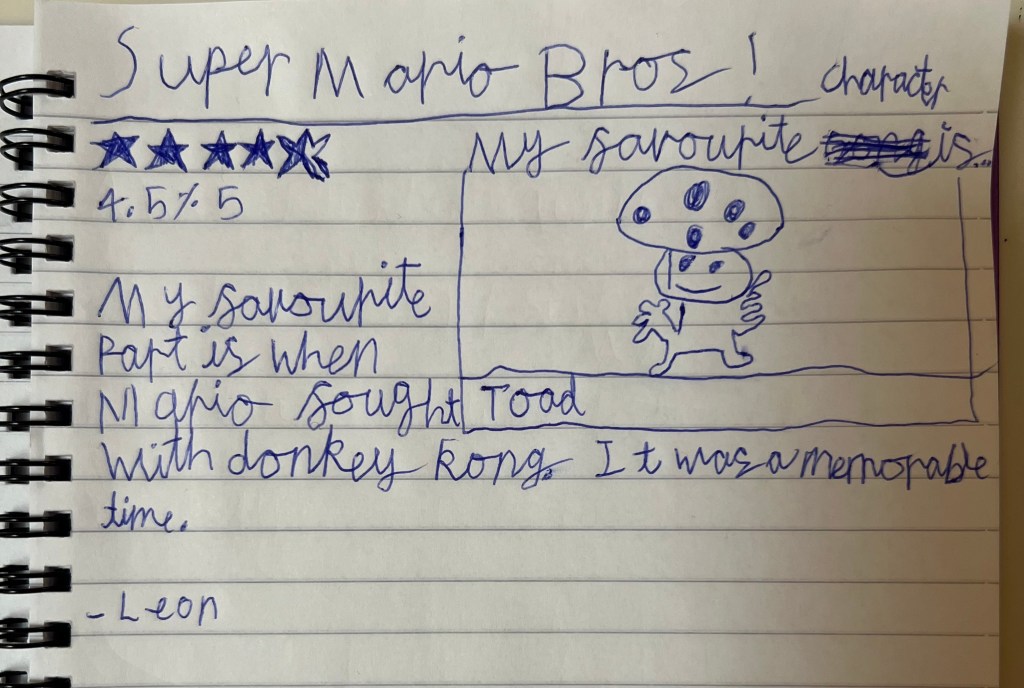 Super Mario Bros!
4.5% 5
My favourite
Part is when
Mario fought
with donkey kong. It was a memorable
time.
- Leon
character
My favourite is...
Toad